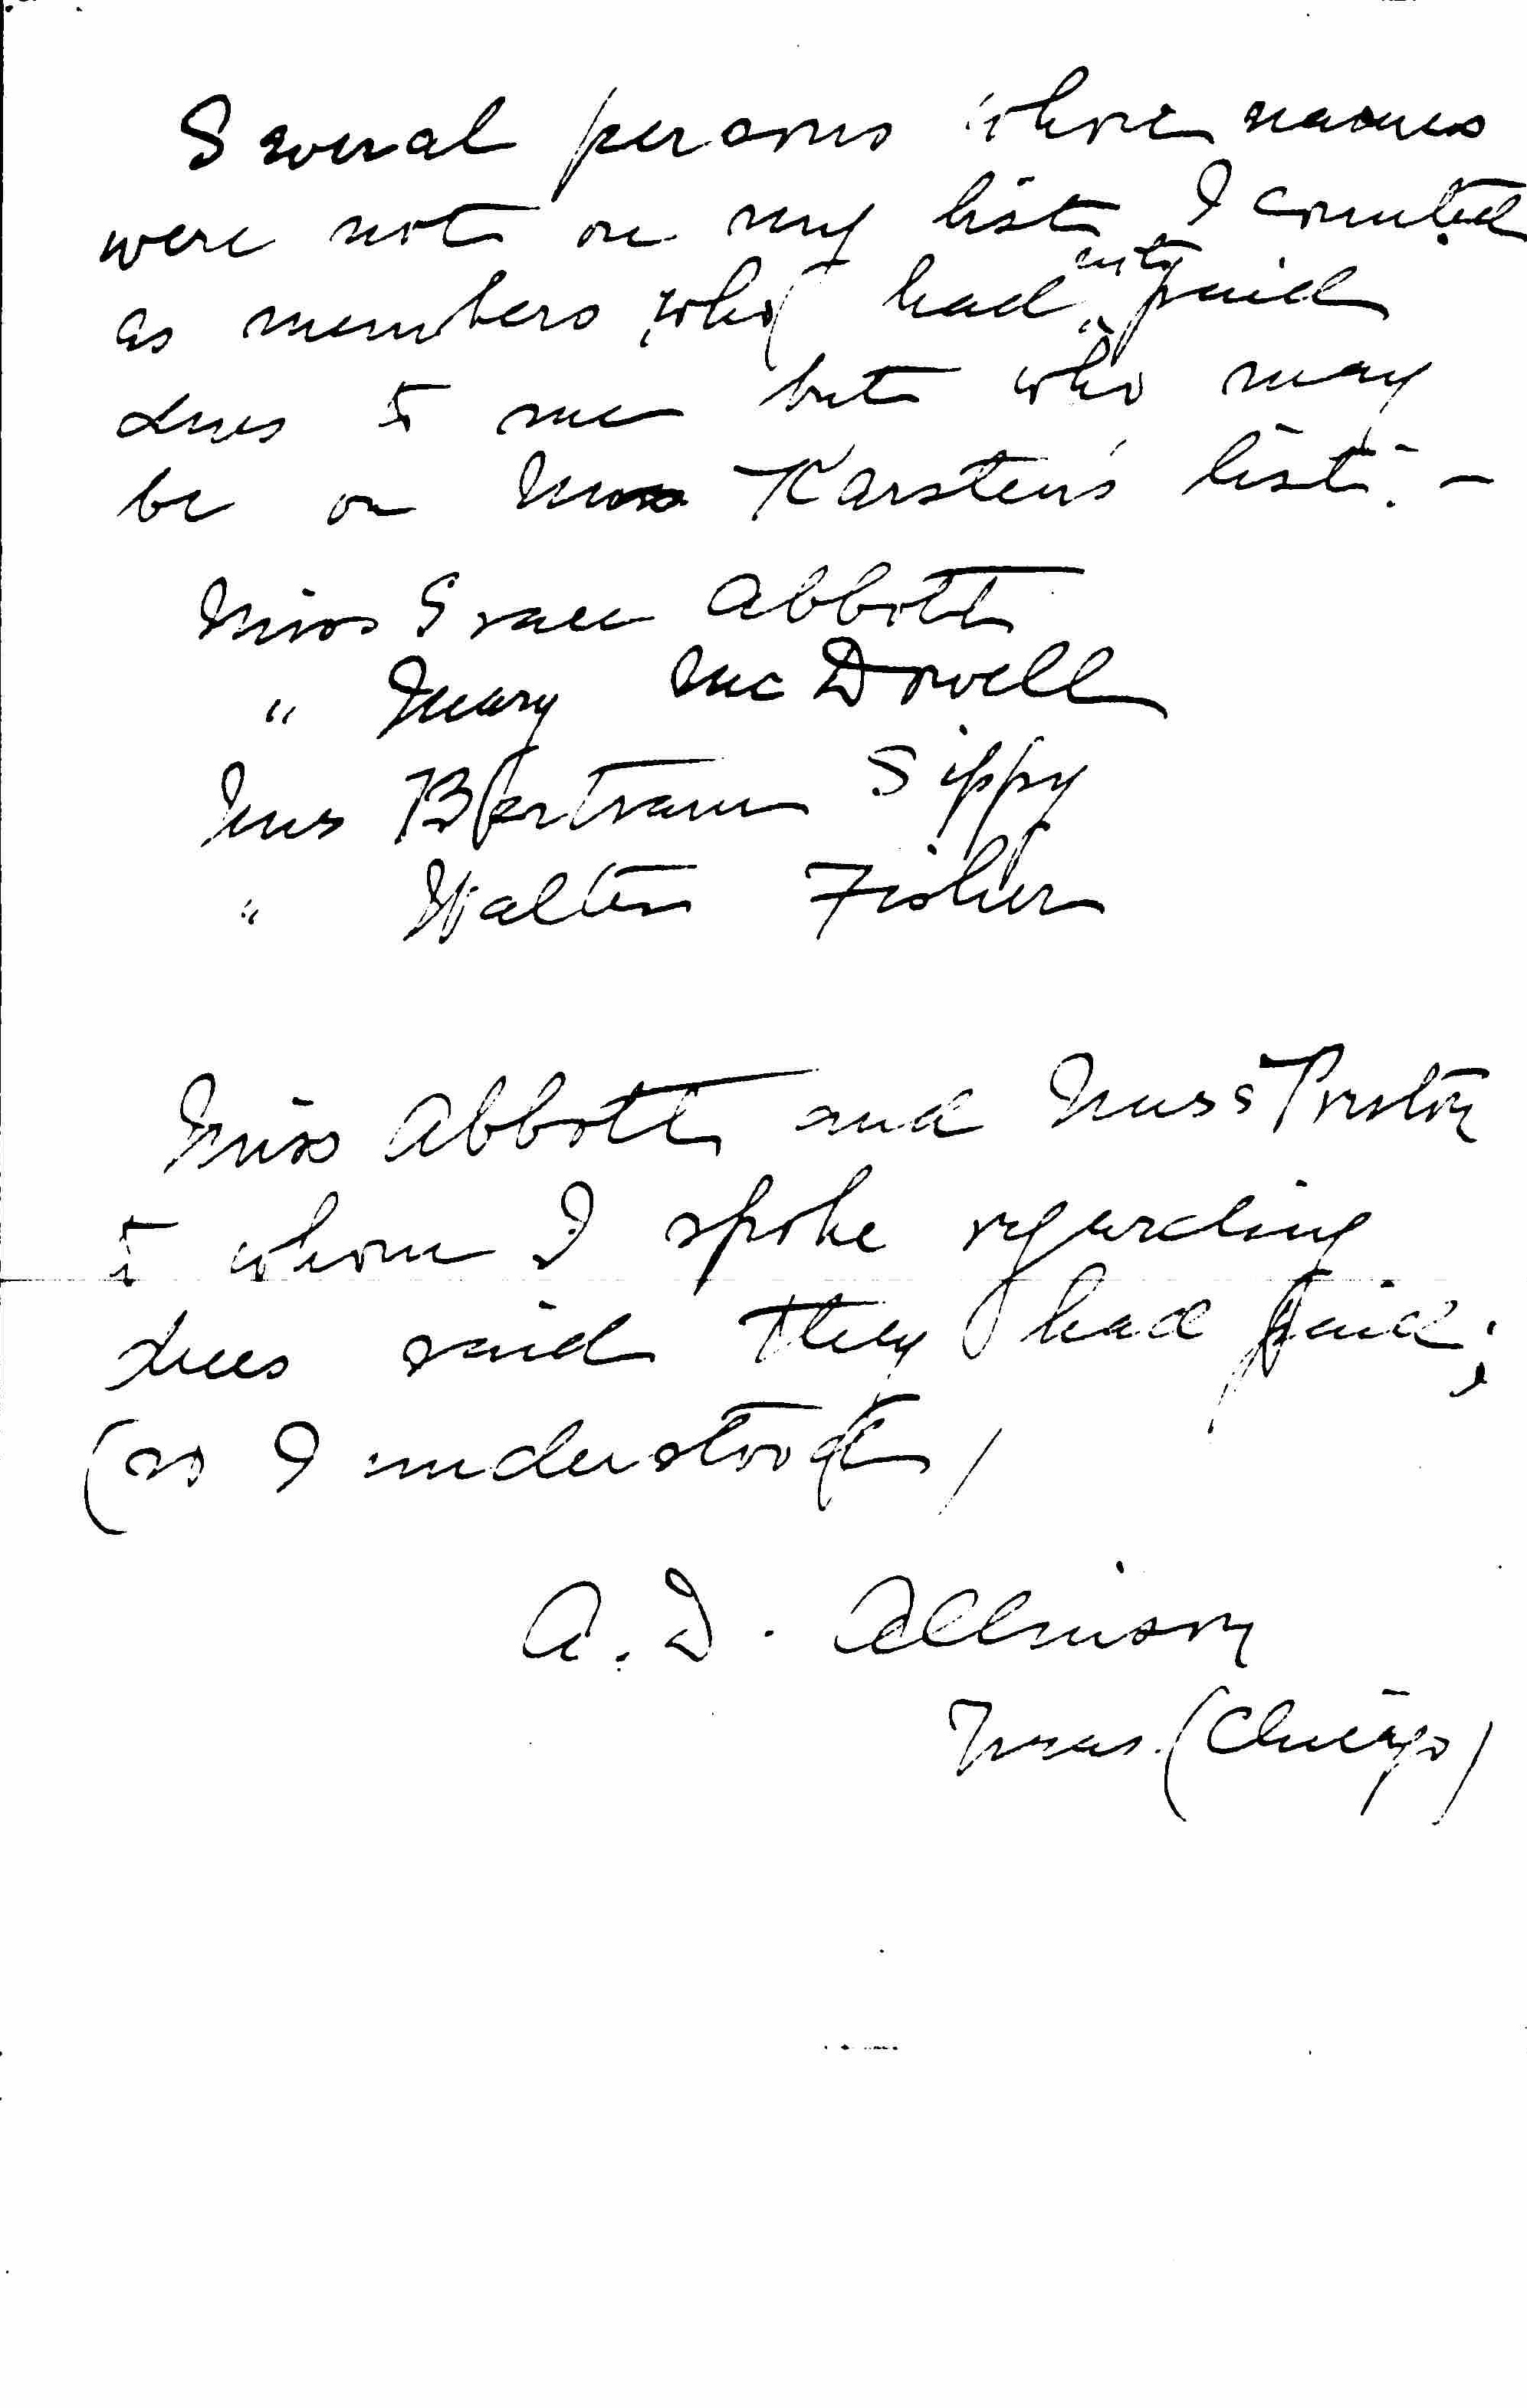 Several persons whose names
were not on my list I counted
as members who had not paid
dues to me but who may
be on Miss Karsten's list. -
Miss Grace Abbott
" Mary McDowell
Mrs Bertram Sippy
" Walter Fisher
Miss Abbott and Miss
to whom I spoke regarding
dues said they had paid;
(so I understood)
A. D. Allinson
Treas. (Chicago)